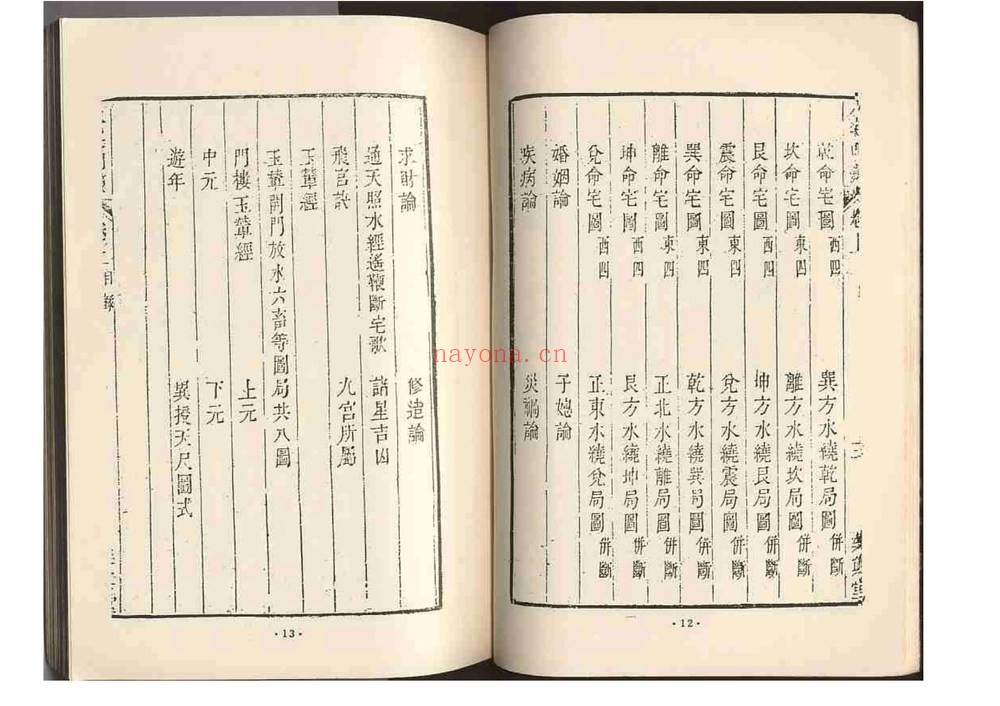 乾命宅圖 西四 巽方水繞乾局圖 併斷
坎命宅圖 東四 離方水繞坎局圖 併斷
艮命宅圖 西四 坤方水繞艮局圖 併斷
震命宅圖 東四 兌方水繞震局圖 併斷
巽命宅圖 東四 乾方水繞巽局圖 併斷
離命宅圖 東四 正北水繞離局圖
坤命宅圖 西四 艮方水繞坤局圖 併斷
兌命宅圖 西四 正東水繞兌局圖 併斷
婚姻論 子媳論
疾病論 災禍論
·12·
求財論 修造論
通天照水經遙鞭斷宅歌 諸星吉凶
飛宮訣 九宮所屬
玉輦經
玉輦開門放水六畜等圖局共八圖
門樓玉輦經 上元
中元 下元
遊年 異授天尺圖式
·13·
nayona.cn